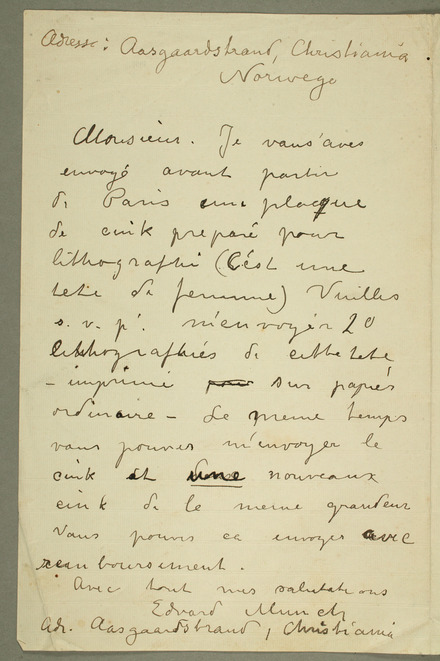 Adresse: Aasgaardstrand, Christiania
Norwege
Monsieur. Je vous aves
envoyé avant partir
di Paris une plaque
de cink preparé pour
lithographi (C'ést une
tete de femme) Vuilles
s. v. p. m'envoyér 20
lithographiés di cette tete
– imprimé sur papiés
ordinaire – Le meme temps
vous pouves m'envoyer le
cink et une nouveaux
cink de le meme grandeur
Vous pouves ca envoyer avec
reimboursement.
Avec tout mes salutations
Edvard Munch
Adr. Aasgaardstrand, Christiania